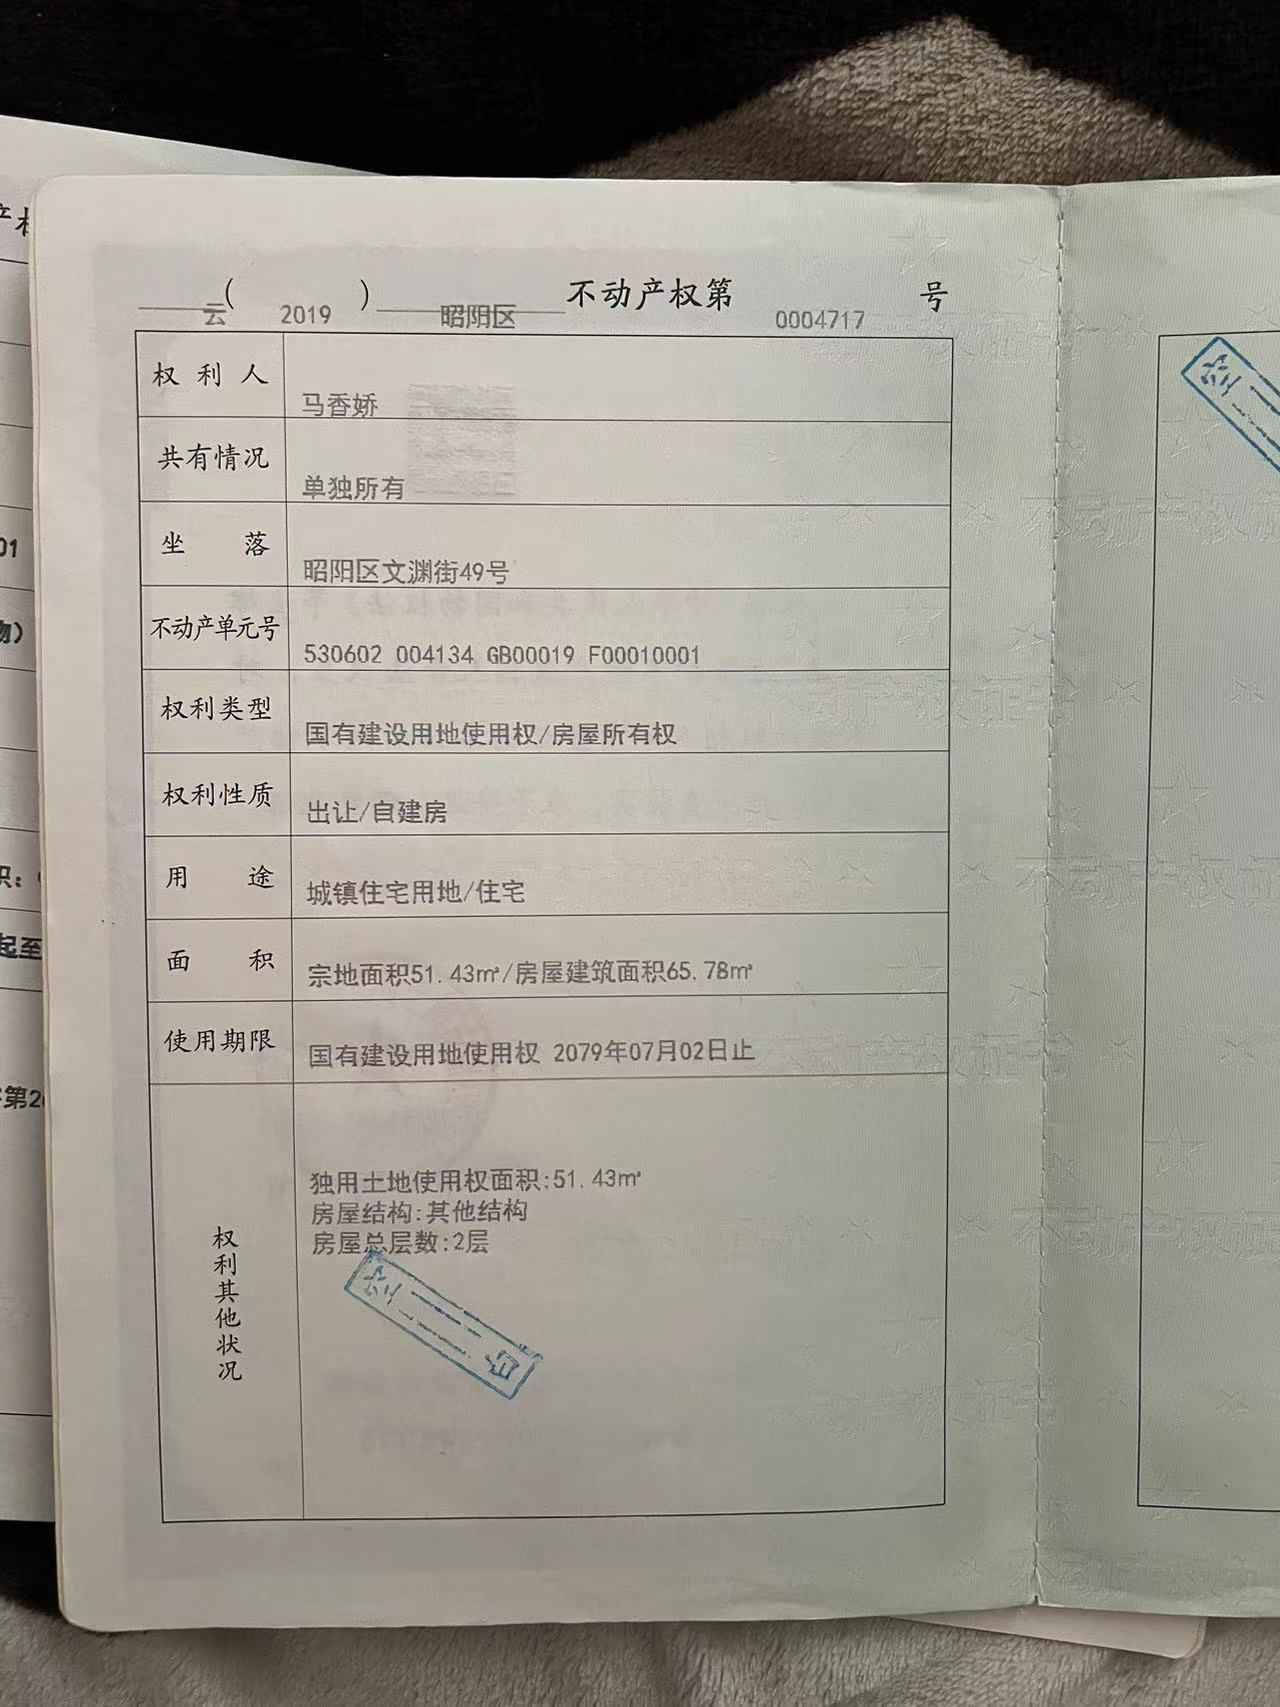 产权
云（2019）昭阳区不动产权第0004717号
权利人 马香娇
共有情况 单独所有
坐落 昭阳区文渊街49号
不动产单元号 530602 004134 GB00019 F00010001
权利类型 国有建设用地使用权/房屋所有权
权利性质 出让/自建房
用途 城镇住宅用地/住宅
面积 宗地面积51.43㎡/房屋建筑面积65.78㎡
使用期限 国有建设用地使用权 2079年07月02日止
权利其他状况
独用土地使用权面积:51.43㎡
房屋结构:其他结构
房屋总层数:2层
空白
空
01
物）
积:
起至
第2